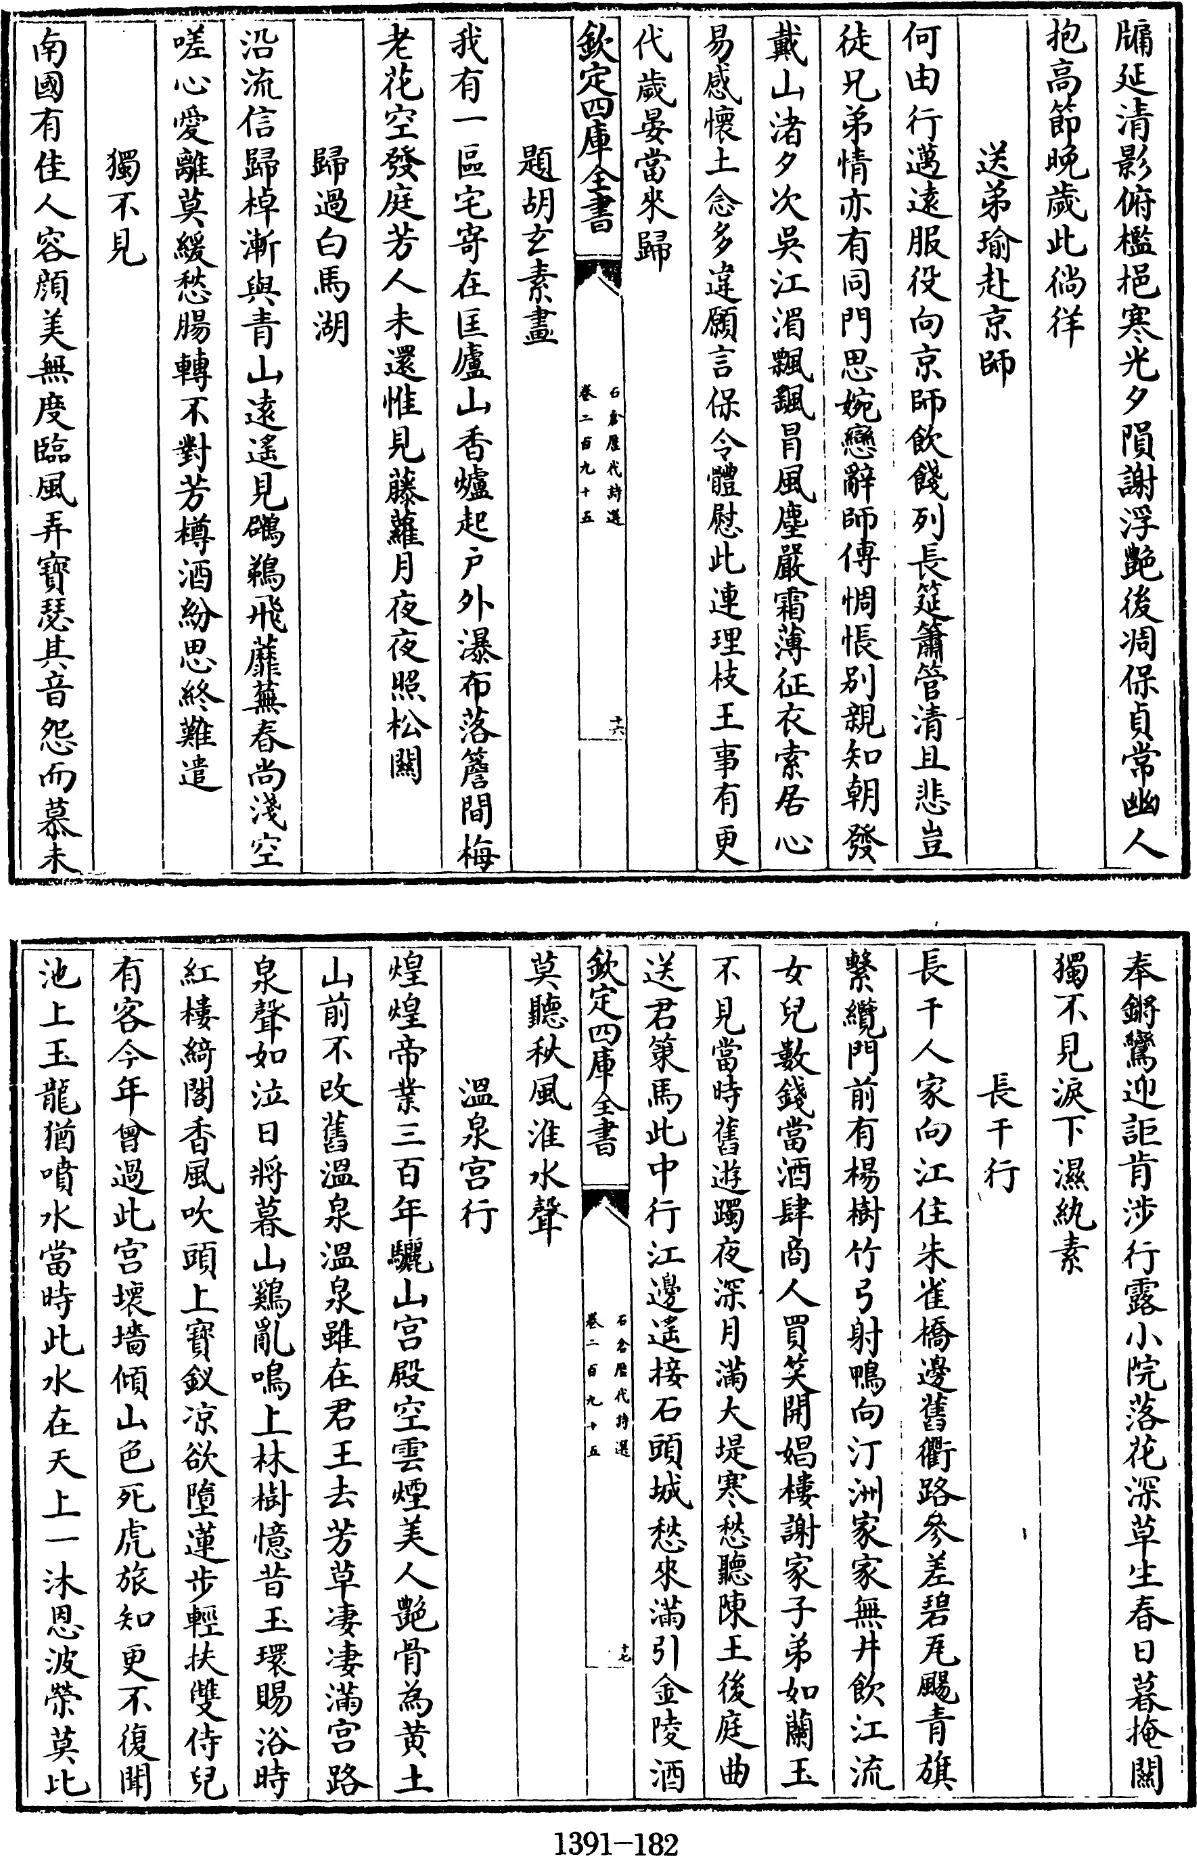 牖延清影俯檻挹寒光夕隕謝浮艷後凋保貞常幽人
抱高節晚歲此徜徉
送弟瑜赴京師
何由行邁遠服役向京師飲餞列長筵簫管清且悲豈
徒兄弟情亦有同門思婉戀辭師傅惆悵别親知朝發
戴山渚夕次吳江湄飄飄冐風塵嚴霜薄征衣索居心
易感懷土念多違願言保令體慰此連理枝王事有更
代歲晏當來歸
欽定四庫全書
石倉歷代詩選
卷二百九十五
十六
題胡玄素畫
我有一區宅寄在匡廬山香爐起户外瀑布落簷間梅
老花空發庭芳人未還惟見藤蘿月夜夜照松關
歸過白馬湖
沿流信歸棹漸與青山遠遙見鵁鶄飛蘼蕪春尚淺空
嗟心愛離莫緩愁腸轉不對芳樽酒紛思終難遣
獨不見
南國有佳人容顔美無度臨風弄寶瑟其音怨而慕未
奉鏘鸞迎詎肯涉行露小院落花深草生春日暮掩關
獨不見淚下濕紈素
長干行
長干人家向江住朱雀橋邊舊衢路參差碧瓦颺青旗
繫纜門前有楊樹竹弓射鴨向汀洲家家無井飲江流
女兒數錢當酒肆商人買笑開娼樓謝家子弟如蘭玉
不見當時舊遊躅夜深月滿大堤寒愁聽陳王後庭曲
送君策馬此中行江邊遙接石頭城愁來滿引金陵酒
欽定四庫全書
石倉歷代詩選
卷二百九十五
十七
莫聽秋風淮水聲
溫泉宫行
煌煌帝業三百年驪山宫殿空雲煙美人艷骨為黄土
山前不改舊溫泉溫泉雖在君王去芳草凄凄滿宫路
泉聲如泣日將暮山鷄亂鳴上林樹憶昔玉環賜浴時
紅樓綺閣香風吹頭上寶釵凉欲墮蓮步輕扶雙侍兒
有客今年曾過此宫壞墻傾山色死虎旅知更不復聞
池上玉龍猶噴水當時此水在天上一沐恩波榮莫比
1391-182